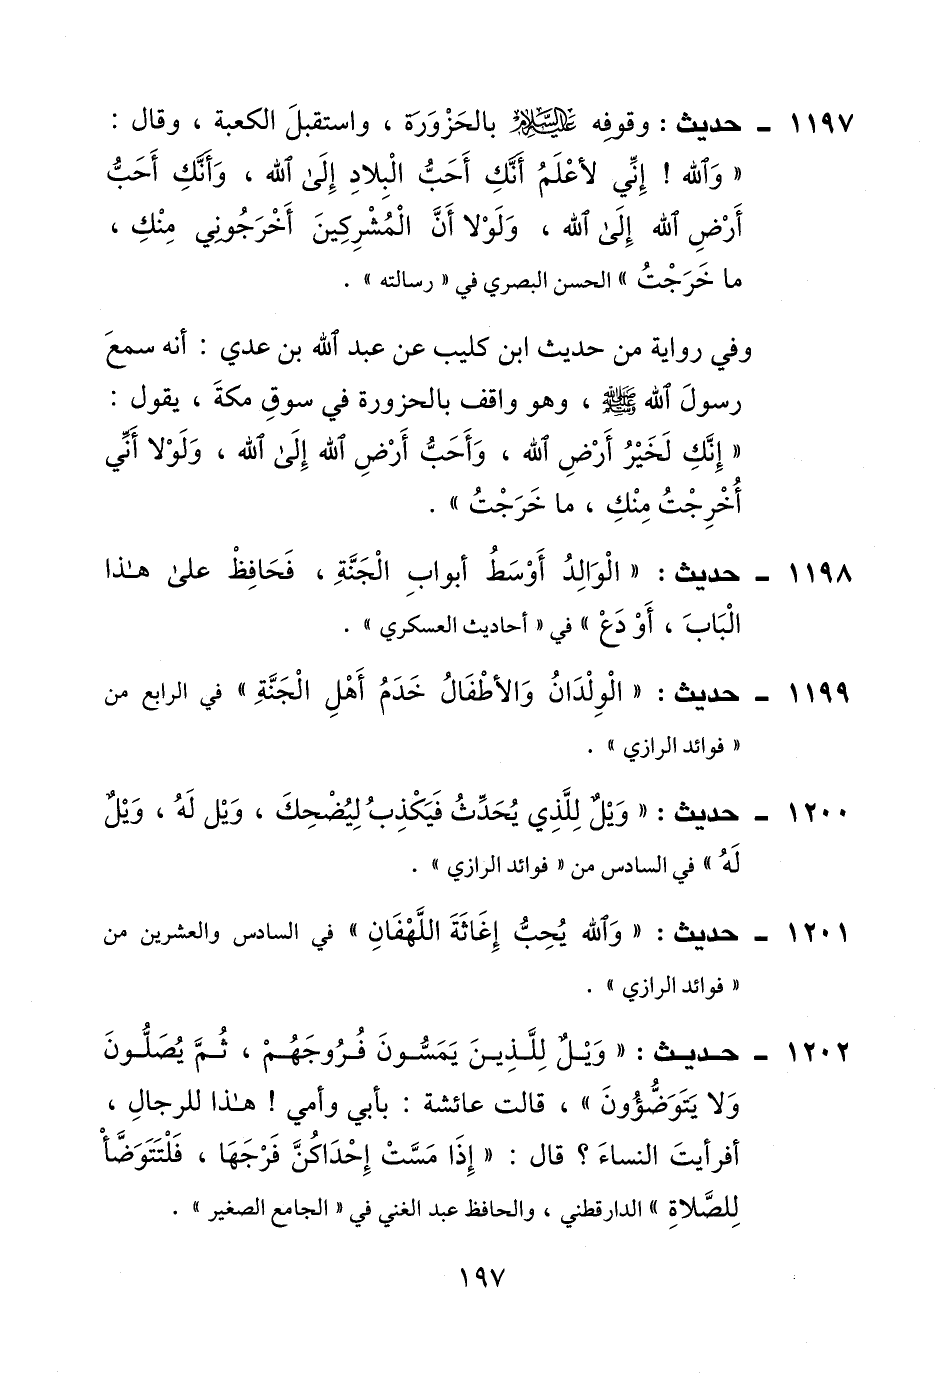 ١١٩٧ ـ حديث : وقوفِه عليه السلام بالحَزْوَرَة ، واستقبلَ الكعبة ، وقال :
« وَٱلله ! إِنِّي لأعْلَمُ أَنَّكِ أَحَبُّ الْبِلادِ إِلَىٰ ٱلله ، وَأَنَّكِ أَحَبُّ
أَرْضِ ٱلله إِلَىٰ ٱلله ، وَلَوْلا أَنَّ الْمُشْرِكِينَ أَخْرَجُونِي مِنْكِ ،
ما خَرَجْتُ » الحسن البصري في « رسالته » .
وفي رواية من حديث ابن كليب عن عبد ٱلله بن عدي : أنه سمعَ
رسولَ ٱلله ﷺ ، وهو واقف بالحزورة في سوقِ مكةَ ، يقول :
« إِنَّكِ لَخَيْرُ أَرْضِ ٱلله ، وَأَحَبُّ أَرْضِ ٱلله إِلَىٰ ٱلله ، وَلَوْلا أَنِّي
أُخْرِجْتُ مِنْكِ ، ما خَرَجْتُ » .
١١٩٨ ـ حديث : « الْوَالِدُ أَوْسَطُ أبوابِ الْجَنَّةِ ، فَحَافِظْ علىٰ هـٰذا
الْبَابَ ، أَوْ دَعْ » في « أحاديث العسكري » .
١١٩٩ ـ حديث : « الْوِلْدَانُ وَالأطْفَالُ خَدَمُ أَهْلِ الْجَنَّةِ » في الرابع من
« فوائد الرازي » .
١٢٠٠ ـ حديث : « وَيْلٌ لِلَّذِي يُحَدِّثُ فَيَكْذِبُ لِيُضْحِكَ ، وَيْل لَهُ ، وَيْلٌ
لَهُ » في السادس من « فوائد الرازي » .
١٢٠١ ـ حديث : « وَٱلله يُحِبُّ إِغَاثَةَ اللَّهْفَانِ » في السادس والعشرين من
« فوائد الرازي » .
١٢٠٢ ـ حديث : « وَيْلٌ لِلَّذِينَ يَمَسُّونَ فُرُوجَهُمْ ، ثُمَّ يُصَلُّونَ
وَلا يَتَوَضَّؤُونَ » ، قالت عائشة : بأبي وأمي ! هـٰذا للرجالِ ،
أفرأيتَ النساءَ ؟ قال : « إِذَا مَسَّتْ إِحْدَاكُنَّ فَرْجَهَا ، فَلْتَتَوَضَّأْ
لِلصَّلاةِ » الدارقطني ، والحافظ عبد الغني في « الجامع الصغير » .
١٩٧